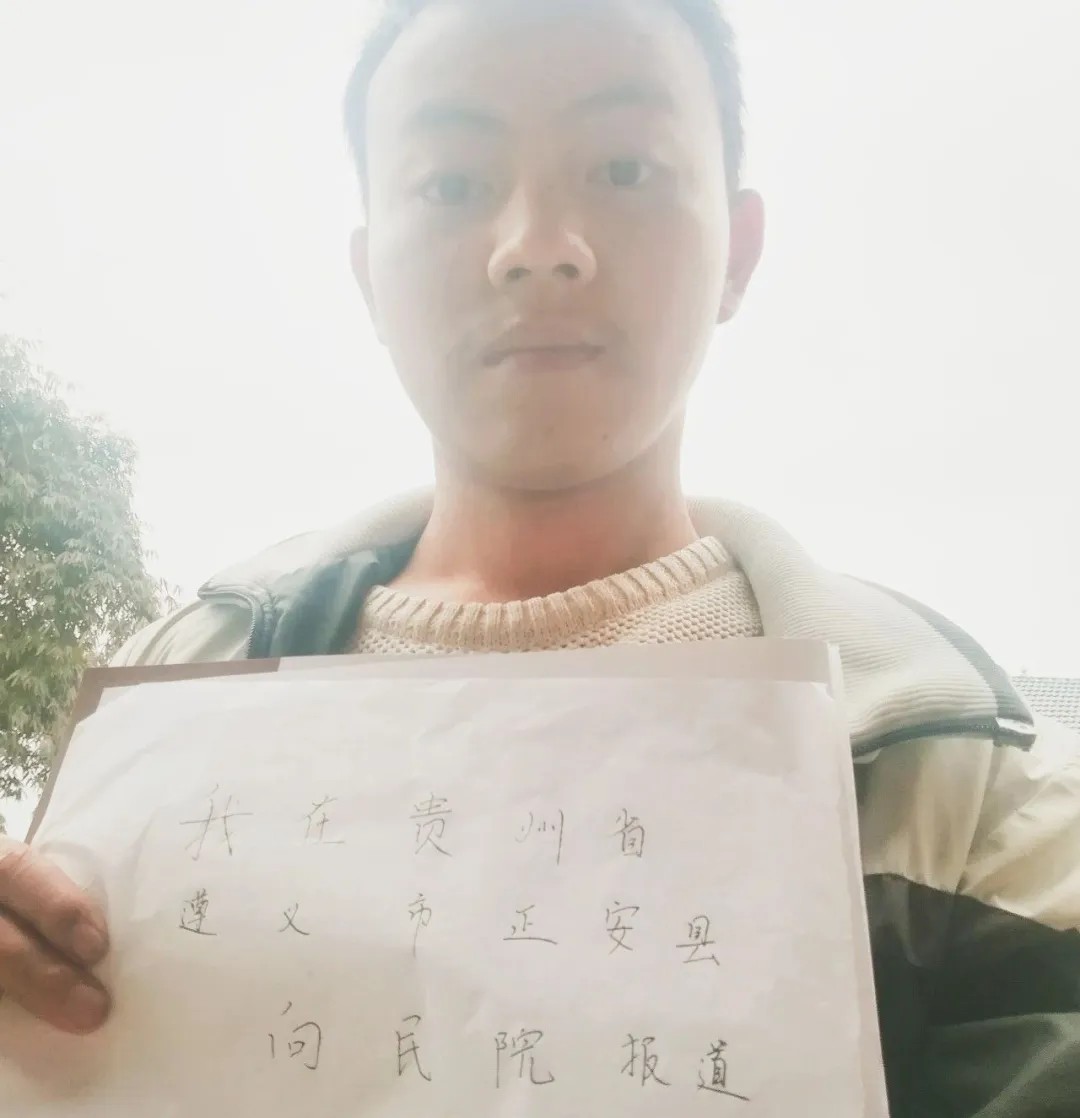 我在贵州省
遵义市正安县
向民院报道